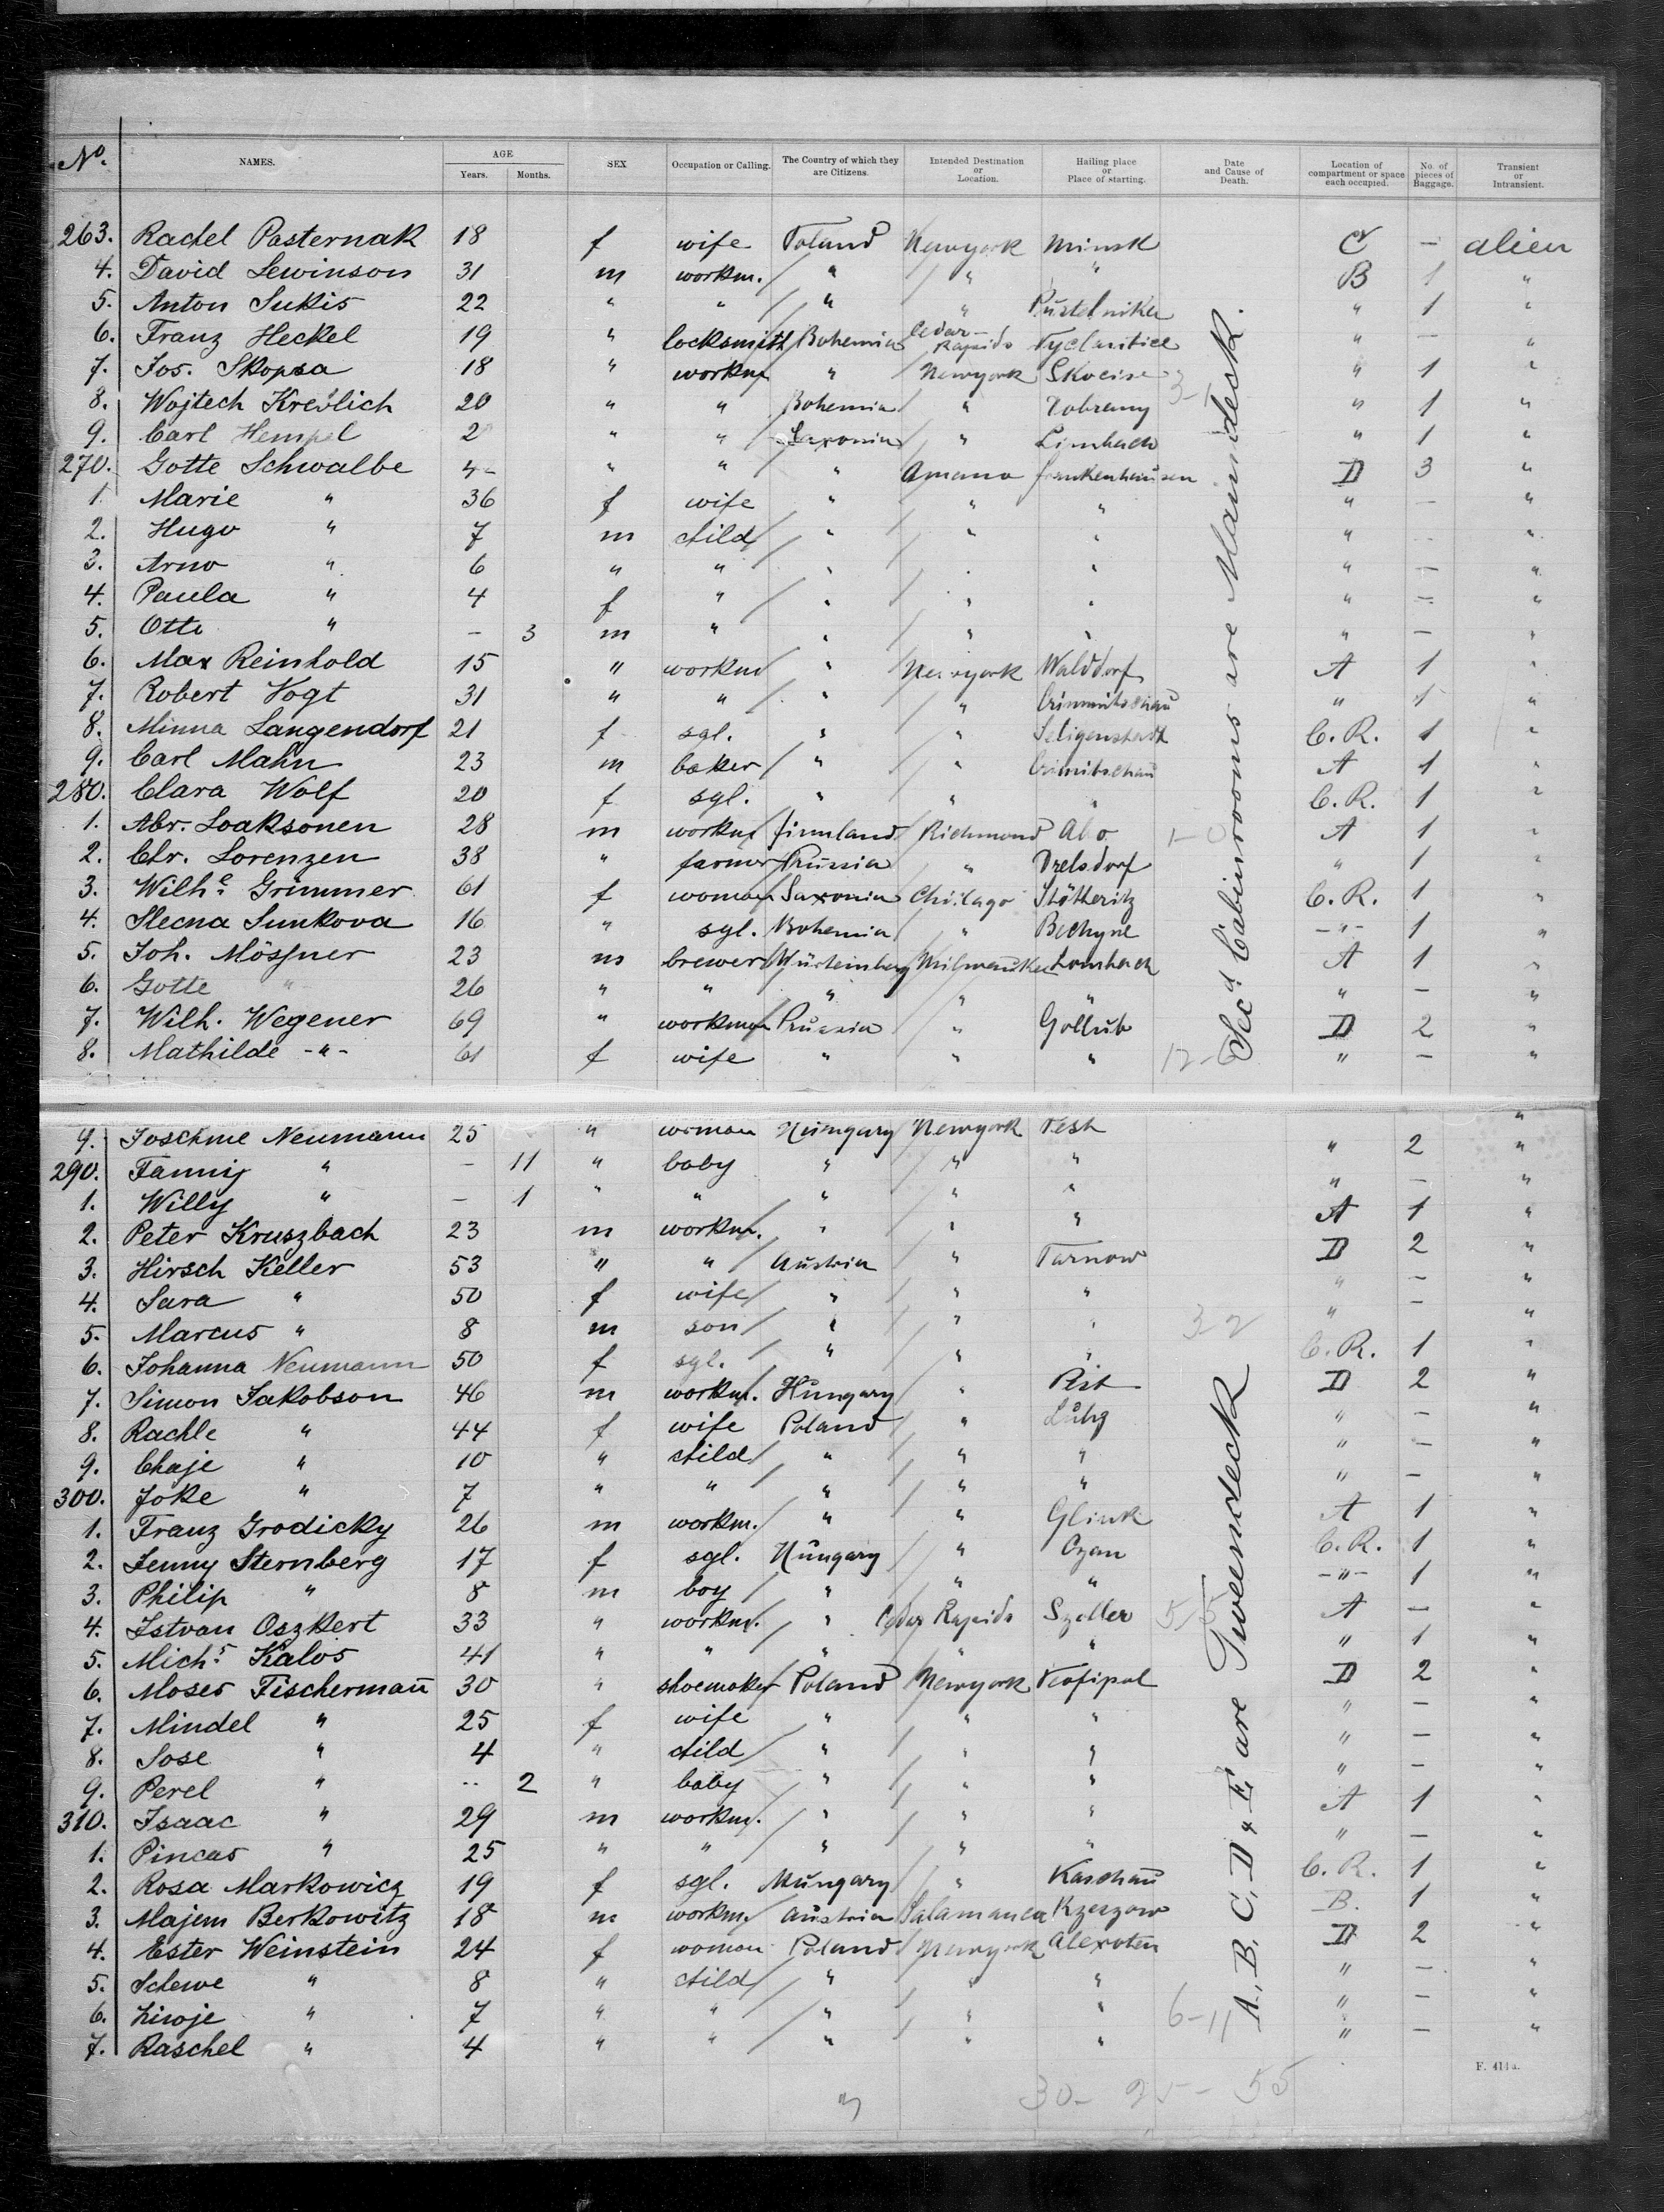 No. NAMES. AGE Years. Months. SEX Occupation or Calling. The Country of which they are Citizens. Intended Destination or Location. Hailing place or Place of starting. Date and Cause of Death. Location of compartment or space each occupied. No. of pieces of Baggage. Transient or Intransient.
263. Rachel Pasternak 18 f wife Poland Newyork Minsk C — alien
4. David Lewinson 31 m workm. " " " B 1 "
5. Anton Sukis 22 " " " " Pustelnike " 1 "
6. Franz Heckel 19 " locksmith Bohemia Cedar Rapids " — "
7. Jos. Skopsa 18 " workm " Newyork " 1 "
8. Wojtech 20 " " Bohemia " Dobrany " 1 "
9. Carl Hempel " " Saxonia " Limbach " 1 "
270. Gotte Schwalbe " " " Amana Frankenhausen D 3 "
1. Marie " 36 f wife " " " " — "
2. Hugo " 7 m child " " " " - "
3. Arno " 6 " " " " " " — "
4. Paula " 4 f " " " " " — "
5. Otto " — 3 m " " " " " — "
6. Max Reinhold 15 " workm " Newyork Walddorf A 1 "
7. Robert Vogt 31 " " " " Crimmitschau " 1 "
8. Minna Langendorf 21 f sgl. " " Seligenstadt C. R. 1 "
9. Carl Mahn 23 m baker " " Crimitschau A 1 "
280. Clara Wolf 20 f sgl. " " " C. R. 1 "
1. Abr. Loaksonen 28 m workm Finnland Richmond Abo A 1 "
2. Chr. Lorenzen 38 " farmer Prussia " Drelsdorf " 1 "
3. Wilhe. Grimmer 61 f woman Saxonia Chicago Stötteritz C. R. 1 "
4. Slecna Sunkova 16 " sgl. Bohemia " Bechyne -"- 1 "
5. Joh. Mössner 23 m brewer Würtemberg Milwaukee Lombach A 1 "
6. Gotte " 26 " " " " " " — "
7. Wilh. Wegener 69 " workman Prussia " Gollub D 2 "
8. Mathilde -"- 61 f wife " " " 12-6 " — "
Secd Cabinrooms are Maindeck.
9. Joschme Neumann 25 " woman Hungary Newyork Pesh " 2 "
290. Fanny " — 11 " baby " " " " — "
1. Willy " — 1 " " " " " A 1 "
2. Peter Kruszbach 23 m workm. " " " D 2 "
3. Hirsch Keller 53 " " Austria " Tarnow " — "
4. Sara " 50 f wife " " " " — "
5. Marcus " 8 m son " " " 3-2
6. Johanna Neumann 50 f sgl. " " " C. R. 1 "
7. Simon Jakobson 46 m workm. Hungary " D 2 "
8. Rachle " 44 f wife Poland " " — "
9. Chaje " 10 " child " " " " — "
300. Joke " 7 " " " " " " — "
1. Franz Grodicky 26 m workm. " " Glink A 1 "
2. Jenny Sternberg 17 f sgl. Hungary " Ozan C. R. 1 "
3. Philip " 8 m boy " " " -"- 1 "
4. Istvan Oszkert 33 " workm. " Cedar Rapids Szeller A — "
5. Michs. Kalos 41 " " " " " " 1 "
6. Moses Fischermañ 30 " shoemaker Poland Newyork Teofipol D 2 "
7. Mindel " 25 f wife " " " " — "
8. Sose " 4 " child " " " " — "
9. Perel " .. 2 " baby " " " " — "
310. Isaac " 29 m workm. " " " A 1 "
1. Pincas " 25 " " " " " " — "
2. Rosa Markowicz 19 f sgl. Hungary " Kaschau C. R. 1 "
3. Majem Berkowitz 18 m workm. Austria Salamanca Rzeszow B. 1 "
4. Ester Weinstein 24 f woman Poland Newyork Alexoten D 2 "
5. Schewe " 8 " child " " " " — "
6. Liwoje " 7 " " " " " 6-11 " — "
7. Raschel " 4 " " " " " " — "
A, B, C, D & E are Tweendeck
F. 411a.
30- 25- 55